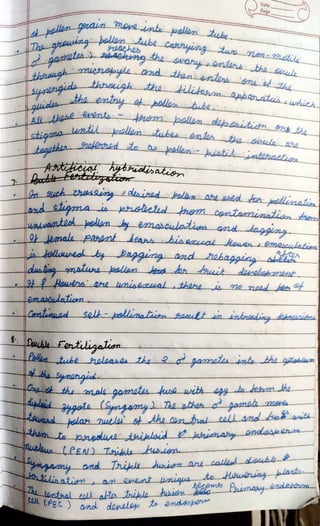 Date
Page
of pollen grain move into pollen tube.
- The growing pollen tube carrying two non-motile
♂ gametes, reaches the ovary, enters the ovule
through micropyle and then enters one of the
synergids through the filiform apparatus, which
guides the entry of pollen tube.
- All these events - from pollen deposition on the
stigma until pollen tubes enter the ovule are
together referred to as pollen-pistil interaction
Artificial hybridisation
7. Double Fertilization
- In such crossing, desired pollen are used for pollination
and stigma is protected from contamination from
unwanted pollen by emasculation and bagging.
- If female parent bears bisexual flower, emasculation
is followed by bagging and rebagging after
dusting mature pollen for fruit development.
- If ♀ flowers are unisexual, there is no need of
emasculation.
- Continued self-pollination result in inbreeding depression
8. Double Fertilization
- Pollen tube releases the 2 ♂ gametes into the cytoplasm
of the synergid.
- One of the male gametes fuse with egg to form the
diploid zygote (Syngamy). The other ♂ gamete moves
toward polar nuclei of the central cell and fuse with
them to produce triploid primary endosperm
nucleus (PEN) Triple fusion.
- Syngamy and Triple fusion are called double
fertilisation, an event unique to flowering plants.
- The central cell after triple fusion becomes Primary endosperm
cell (PEC) and develop to endosperm